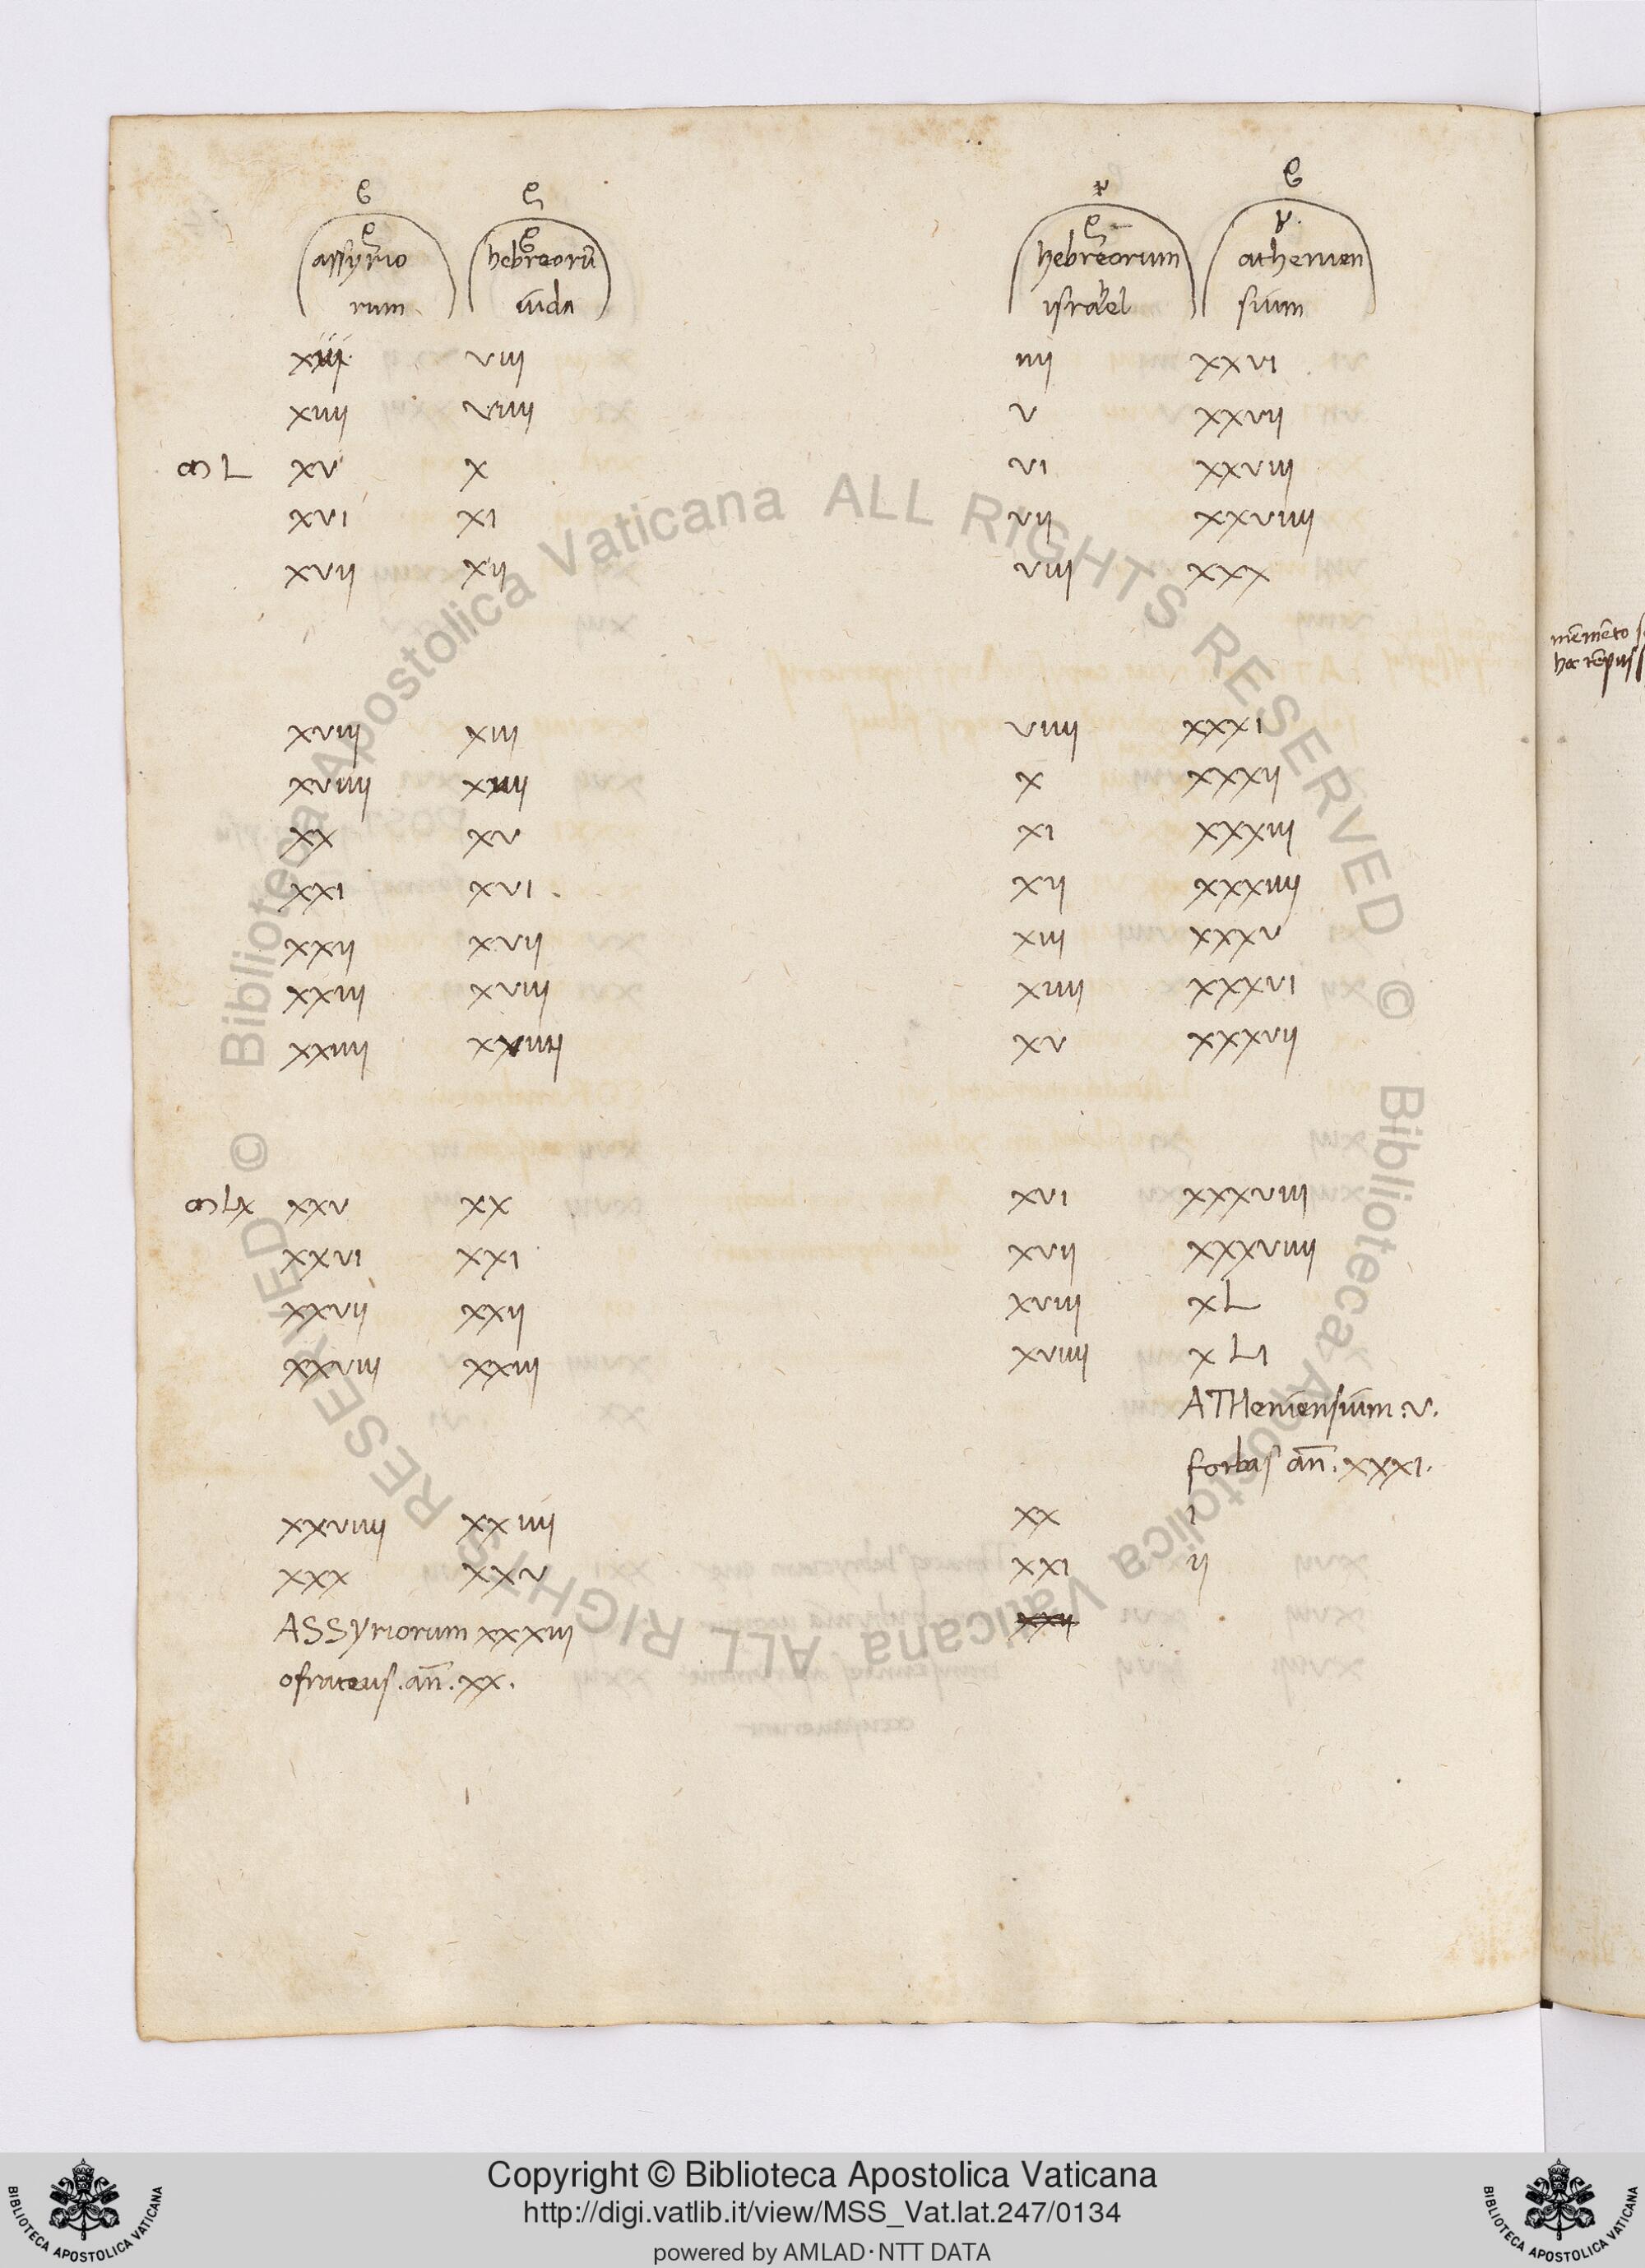 assyrio hebreorū hebreorum athenien
rum iuda israhel sium
xiii viii iiii xxvi
xiiii viiii v xxvii
ↀ L xv x vi xxviii
xvi xi vii xxviiii
xvii xii viii xxx
xviii xiii viiii xxxi
xviiii xiiii x xxxii
xx xv xi xxxiii
xxi xvi xii xxxiiii
xxii xvii xiii xxxv
xxiii xviii xiiii xxxvi
xxiiii xviiii xv xxxvii
ↀ Lx xxv xx xvi xxxviii
xxvi xxi xvii xxxviiii
xxvii xxii xviii xL
xxviii xxiii xviiii xLi
ATHeniensium .v.
forbas an̄. xxxi.
xxviiii xxiiii xx i
xxx xxv xxi ii
ASSyriorum xxxiii xxii
ofrateus. an̄. xx.
mēmēto
hoc tēpus
Biblioteca Apostolica Vaticana ALL RIGHTS RESERVED ©
Biblioteca Apostolica Vaticana ALL RIGHTS RESERVED ©
Copyright © Biblioteca Apostolica Vaticana
http://digi.vatlib.it/view/MSS_Vat.lat.247/0134
powered by AMLAD·NTT DATA
BIBLIOTECA APOSTOLICA VATICANA
BIBLIOTECA APOSTOLICA VATICANA